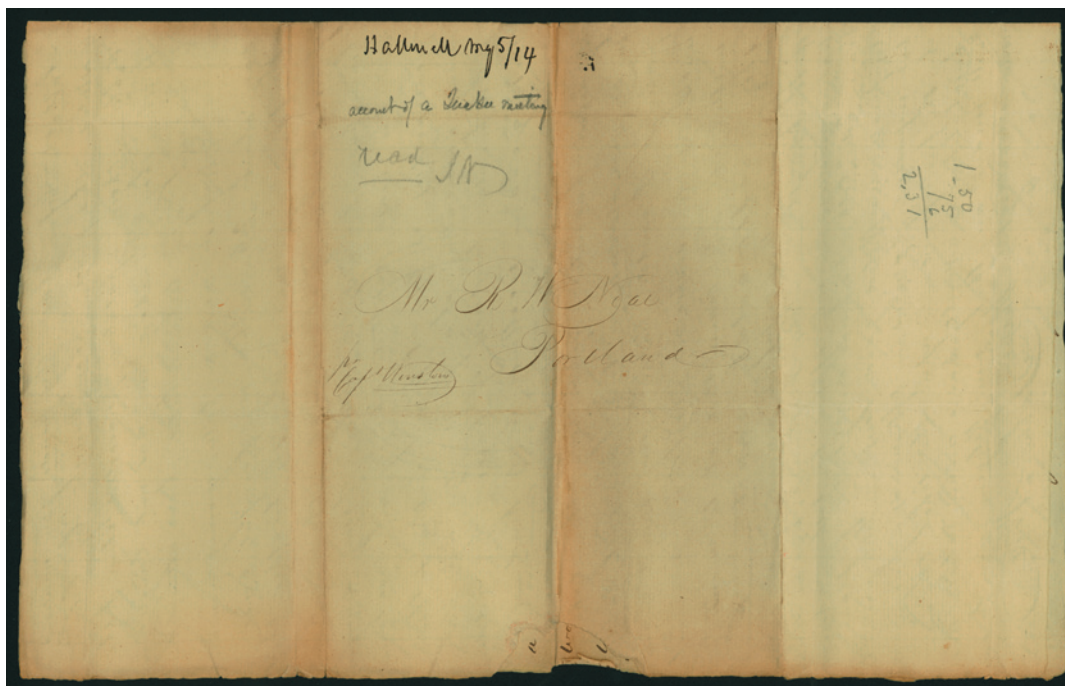 Hallowell Aug 5/14
account of a Quaker meeting
read JN
Mr R. H Neal
Portland
Pr Capt Winslow
1-50
75
6
2,31
a